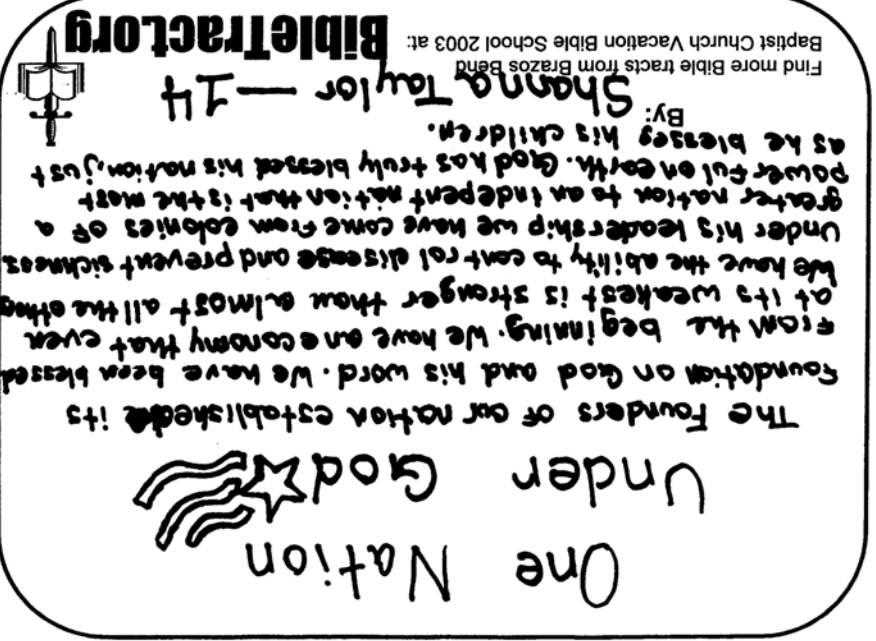 One Nation
Under God
The Founders of our nation established its
foundation on God and his word. We have been blessed
from the beginning. We have an economy that even
at its weakest is stronger than almost all the other
We have the ability to control disease and prevent sickness
Under his leadership we have come from colonies of a
greater nation to an indepent nation that is the most
powerful on earth. God has truly blessed his nation, just
as he blesses his children.
By: Shanna Taylor — 14
Find more Bible tracts from Brazos Bend
Baptist Church Vacation Bible School 2003 at:
BibleTract.org